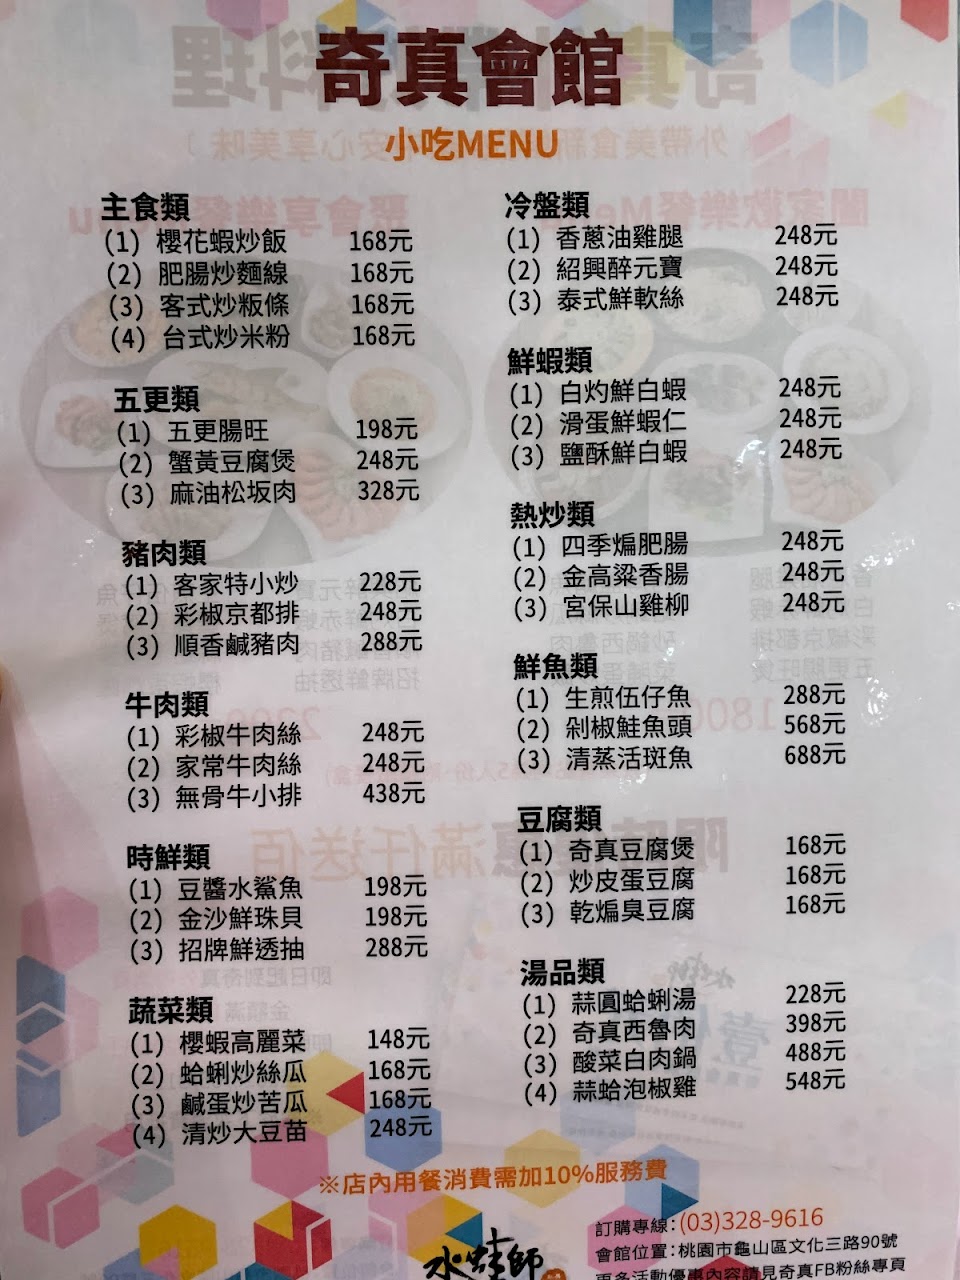 奇真會館
小吃MENU
主食類
(1) 櫻花蝦炒飯 168元
(2) 肥腸炒麵線 168元
(3) 客式炒粄條 168元
(4) 台式炒米粉 168元
五更類
(1) 五更腸旺 198元
(2) 蟹黃豆腐煲 248元
(3) 麻油松坂肉 328元
豬肉類
(1) 客家特小炒 228元
(2) 彩椒京都排 248元
(3) 順香鹹豬肉 288元
牛肉類
(1) 彩椒牛肉絲 248元
(2) 家常牛肉絲 248元
(3) 無骨牛小排 438元
時鮮類
(1) 豆醬水鯊魚 198元
(2) 金沙鮮珠貝 198元
(3) 招牌鮮透抽 288元
蔬菜類
(1) 櫻蝦高麗菜 148元
(2) 蛤蜊炒絲瓜 168元
(3) 鹹蛋炒苦瓜 168元
(4) 清炒大豆苗 248元
冷盤類
(1) 香蔥油雞腿 248元
(2) 紹興醉元寶 248元
(3) 泰式鮮軟絲 248元
鮮蝦類
(1) 白灼鮮白蝦 248元
(2) 滑蛋鮮蝦仁 248元
(3) 鹽酥鮮白蝦 248元
熱炒類
(1) 四季煸肥腸 248元
(2) 金高粱香腸 248元
(3) 宮保山雞柳 248元
鮮魚類
(1) 生煎伍仔魚 288元
(2) 剁椒鮭魚頭 568元
(3) 清蒸活斑魚 688元
豆腐類
(1) 奇真豆腐煲 168元
(2) 炒皮蛋豆腐 168元
(3) 乾煸臭豆腐 168元
湯品類
(1) 蒜圓蛤蜊湯 228元
(2) 奇真西魯肉 398元
(3) 酸菜白肉鍋 488元
(4) 蒜蛤泡椒雞 548元
※店內用餐消費需加10%服務費
水蛙師
訂購專線：(03)328-9616
會館位置：桃園市龜山區文化三路90號
更多活動優惠內容請見奇真FB粉絲專頁